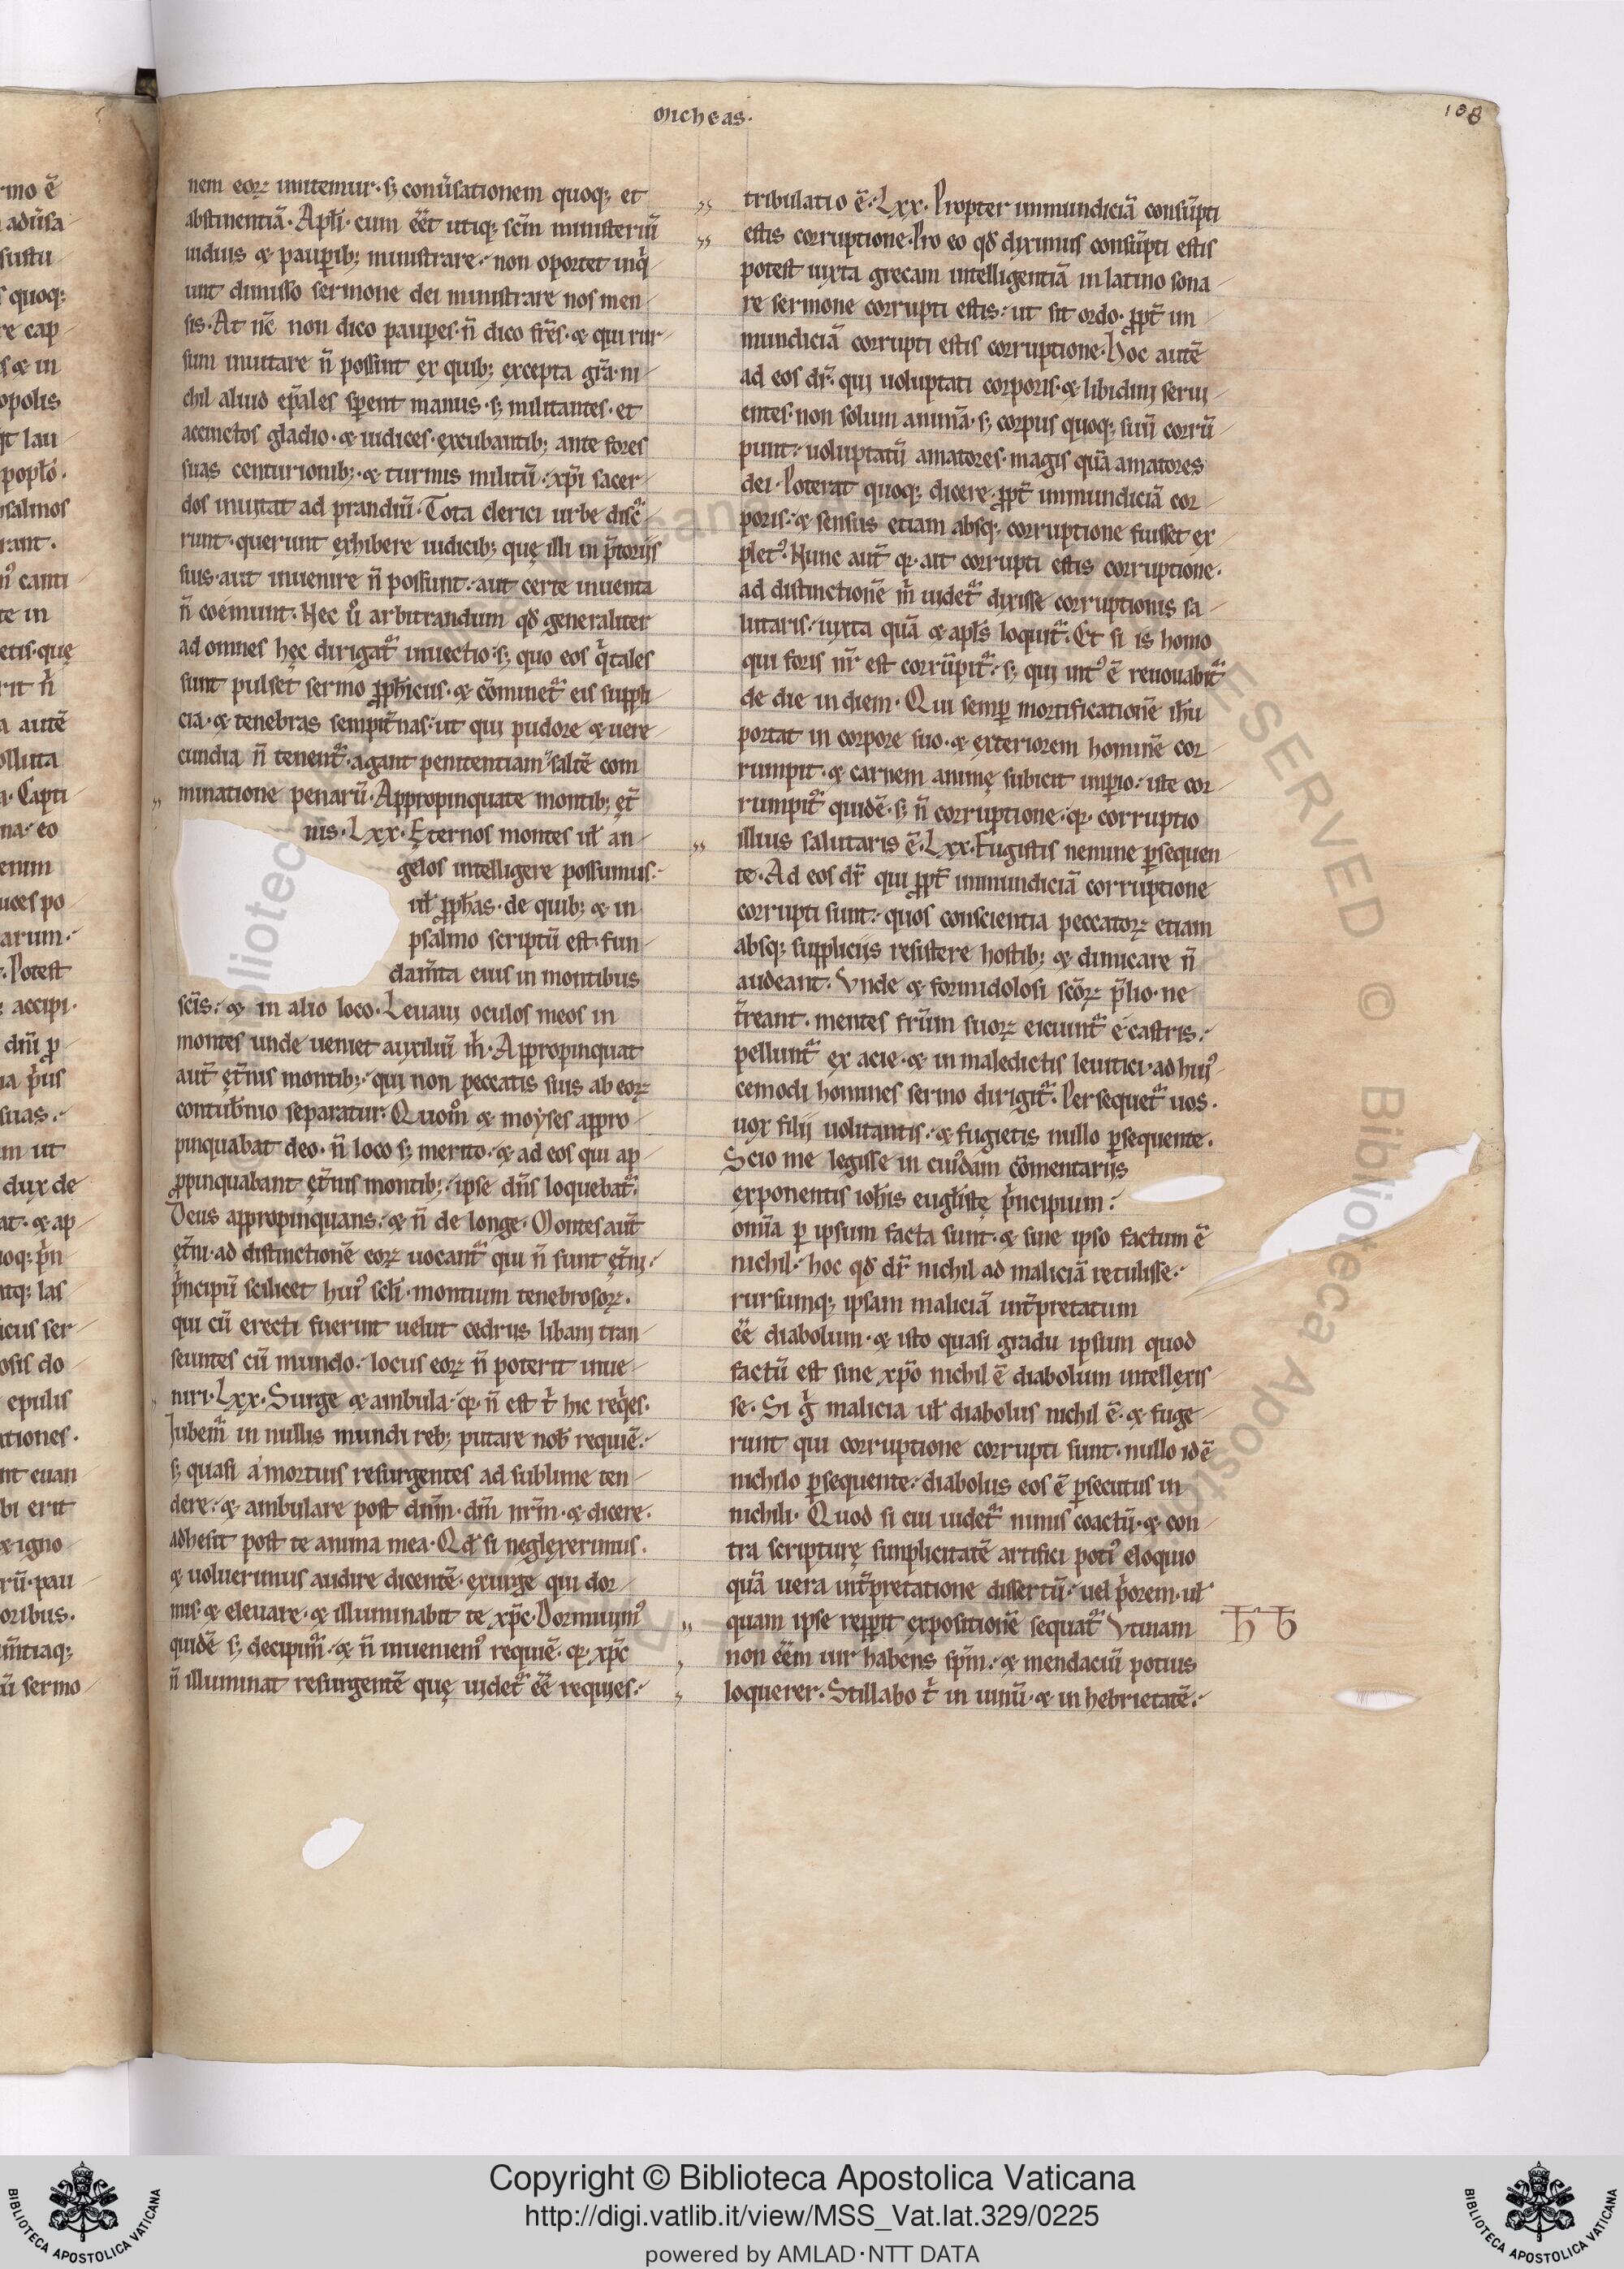 micheas.
108
nem eoꝝ imitemur· sꝫ conu̾sationem quoqꝫ et
abstinentiā· Apłi· cum eēt utiqꝫ scm̄ ministeriū
uiduis ⁊ paup̱ibꝫ ministrare· non oportet inq̇
unt dimisso sermone dei ministrare nos men
sis· At nc̄ non dico paupes· n̄ dico fr̄es· ⁊ qui rur
sum inuitare n̄ possint ex quibꝫ excepta gr̄a· ni
chil aliud ep̄ales sp̱ent manus· sꝫ militantes· et
accinctos gladio· ⁊ iudices· excubantibꝫ ante fores
suas centurionibꝫ· ⁊ turmis militū· xp̄i sacer
dos inuitat ad prandiū· Tota clerici urbe disc̾
runt· querunt exhibere iudicibꝫ· quę illi in p̄torijs
suis· aut inuenire n̄ possunt· aut certe inuenta
n̄ coémunt· Nec u̾o arbitrandum qđ generaliter
ad omnes hęc dirigat̾ inuectio· sꝫ quo eos q̇ tales
sunt pulset sermo ꝓph̄icus· ⁊ cōminet̾ eis suppli
cia· ⁊ tenebras sempit̾nas· ut qui pudore ⁊ uere
cundia n̄ tenent̾· agant penitentiam saltē com
minatione penarū· Appropinquate montibꝫ ęt̾
nis· Lxx· Eternos montes uł an
gelos intelligere possumus·
uł ꝓph̄as· de quibꝫ ⁊ in
psalmo scriptū est· fun
dam̄ta eius in montibus
sc̄is· ⁊ in alio loco· Leuaui oculos meos in
montes unde ueniet auxiliū m̄· Appropinquat
aut̄ ęt̾nis montibꝫ· qui non peccatis suis ab eoꝝ
contub̾nio separatur· Quom̊ ⁊ moyses appro
pinquabat deo· n̄ loco sꝫ merito· ⁊ ad eos qui ap
ꝓpinquabant ęt̾nis montibꝫ· ipse dn̄s loquebat̾·
Deus appropinquans· ⁊ n̄ de longe· Montes aut̄
ęt̾ni· ad distinctionē eoꝝ uocant̾ qui n̄ sunt ęt̾ni·
ṗncipū scilicet huiꝰ scłi· montium tenebrosoꝝ·
qui cū erecti fuerint uelut cedrus libani tran
seuntes cū mundo· locus eoꝝ n̄ poterit inue
niri· Lxx· Surge ⁊ ambula· q̵· n̄ est t̊ hic req̇es·
Iubem̾ in nullis mundi rebꝫ putare nob̄ requiē·
sꝫ quasi a mortuis resurgentes ad sublime ten
dere· ⁊ ambulare post dn̄m· dm̄ nr̄m· ⁊ dicere·
adhesit post te anima mea· Qđ si neglexerimus·
⁊ uoluerimus audire dicentē· exurge qui dor
mis· ⁊ eleuare· ⁊ illuminabit te xp̄c· Dormiuimꝰ
quidē sꝫ decipim̾· ⁊ n̄ inueniemꝰ requiē· q̵· xp̄c
n̄ illuminat resurgentē quę uidet̾ eē requies·
tribulatio ē· Lxx· Propter immundiciā consūpti
estis corruptione· Pro eo qđ diximus consūpti estis
potest iuxta grecam intelligentiā in latino sona
re sermone corrupti estis· ut sit ordo· ꝓpt̾ im
mundiciā corrupti estis corruptione· Hoc autē
ad eos dr̄· qui uoluptati corporis· ⁊ libidini serui
entes· non solum animā· sꝫ corpus quoqꝫ suū corrū
punt· uoluptatū amatores· magis quā amatores
dei· Poterat quoqꝫ dicere· ꝓpt̾ immundiciā cor
poris· ⁊ sensus etiam absqꝫ corruptione fuisset ex
pletꝰ· Nunc aut̄ q̵· ait corrupti estis corruptione·
ad distinctionē m̊ uidet̾ dixisse corruptionis sa
lutaris· iuxta quā ⁊ apłs loquit̾· Et si is homo
qui foris nr̄ est corrūpit̾· sꝫ qui intꝰ ē renouabit̾
de die in diem· Qui semp̱ mortificationē ih̄u
portat in corpore suo· ⁊ exteriorem hominē cor
rumpit· ⁊ carnem animę subicit imp̱io· iste cor
rumpit̾ quidē· sꝫ n̄ corruptione· q̵· corruptio
illius salutaris ē· Lxx· Fugistis nemine p̱sequen
te· Ad eos dr̄ qui ꝓpt̾ immundiciā corruptione
corrupti sunt· quos conscientia peccatoꝝ etiam
absqꝫ supplicijs resistere hostibꝫ ⁊ dimicare n̄
audeant· Vnde ⁊ formidolosi sc̄oꝝ p̄lio· ne
t̾reant· mentes fr̄um suoꝝ eiciunt̾ é castris·
pellunt̾ ex acie· ⁊ in maledictis leuitici· ad huiꝰ
cemodi homines sermo dirigit̾· Persequet̾ uos·
uox filii uolitantis· ⁊ fugietis nullo p̱sequente·
Scio me legisse in cuiꝰdam cōmentarijs
exponentis ioh̄is eugłistę ṗncipium·
om̄ia p̱ ipsum facta sunt· ⁊ sine ipso factum ē
nichil· hoc qđ dr̄ nichil ad maliciā retulisse·
rursumqꝫ ipsam maliciā int̾pretatum
eē diabolum· ⁊ isto quasi gradu ipsum quod
factū est sine xp̄o nichil ē diabolum intellexis
se· Si g̊ malicia uł diabolus nichil ē· ⁊ fuge
runt qui corruptione corrupti sunt· nullo id ē
nichilo p̱sequente· diabolus eos ē p̱secutus in
nichili· Quod si cui uidet̾ nimis coactū· ⁊ con
tra scripturę simplicitatē artifici potiꝰ eloquio
quā uera int̾pretatione dissertū· uel ṗorem· uł
quam ipse rep̱perit expositionē sequat̾· Vtinam
non eēm uir habens sp̄m· ⁊ mendaciū potius
loquerer· Stillabo t̊ in uinū· ⁊ in hebrietatē·
Copyright © Biblioteca Apostolica Vaticana
http://digi.vatlib.it/view/MSS_Vat.lat.329/0225
powered by AMLAD·NTT DATA
BIBLIOTECA APOSTOLICA VATICANA
BIBLIOTECA APOSTOLICA VATICANA